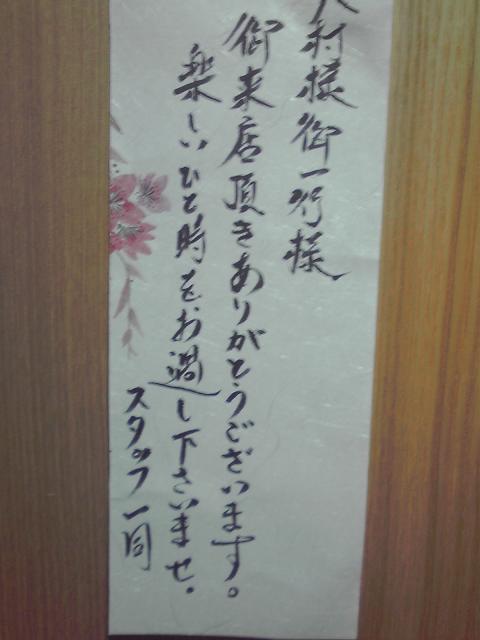 村様御一行様
御来店頂きありがとうございます。
楽しいひと時をお過し下さいませ。
スタッフ一同